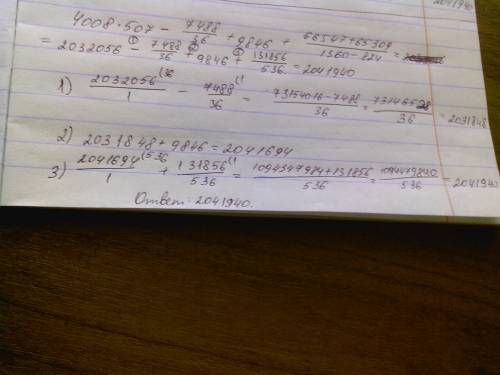 2041940
4008·507 − 7488/36 + 9846 + (66547+65309)/(1360−824) =
= 2032056 ① − 7488/36 ② + 9846 ③ + 131856/536 = 2041940
1) 2032056(36/1 − 7488(1/36 = (73154016−7488)/36 = 73146528/36 = 2031848
2) 2031848 + 9846 = 2041694
3) 2041694(536/1 + 131856(1/536 = (1094347984+131856)/536 = 1094479840/536 = 2041940
Ответ: 2041940.